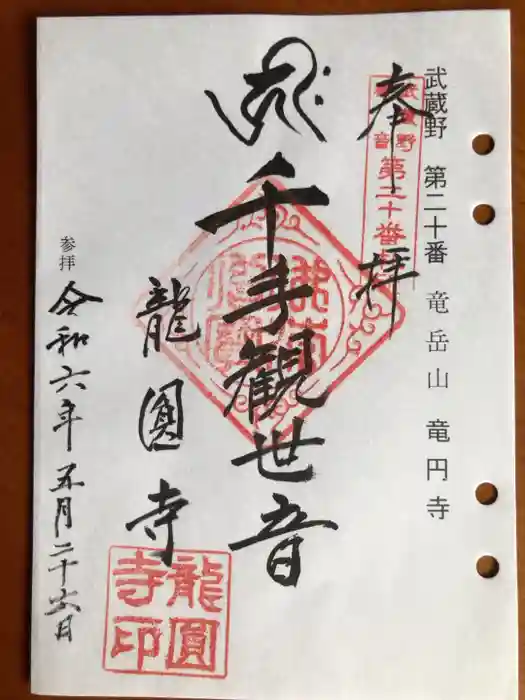 武蔵野 第二十番 竜岳山 竜円寺
奉拝
武蔵野
観音
第二十番
千手観世音
龍圓寺
龍圓
寺印
参拝 令和六年五月二十六日